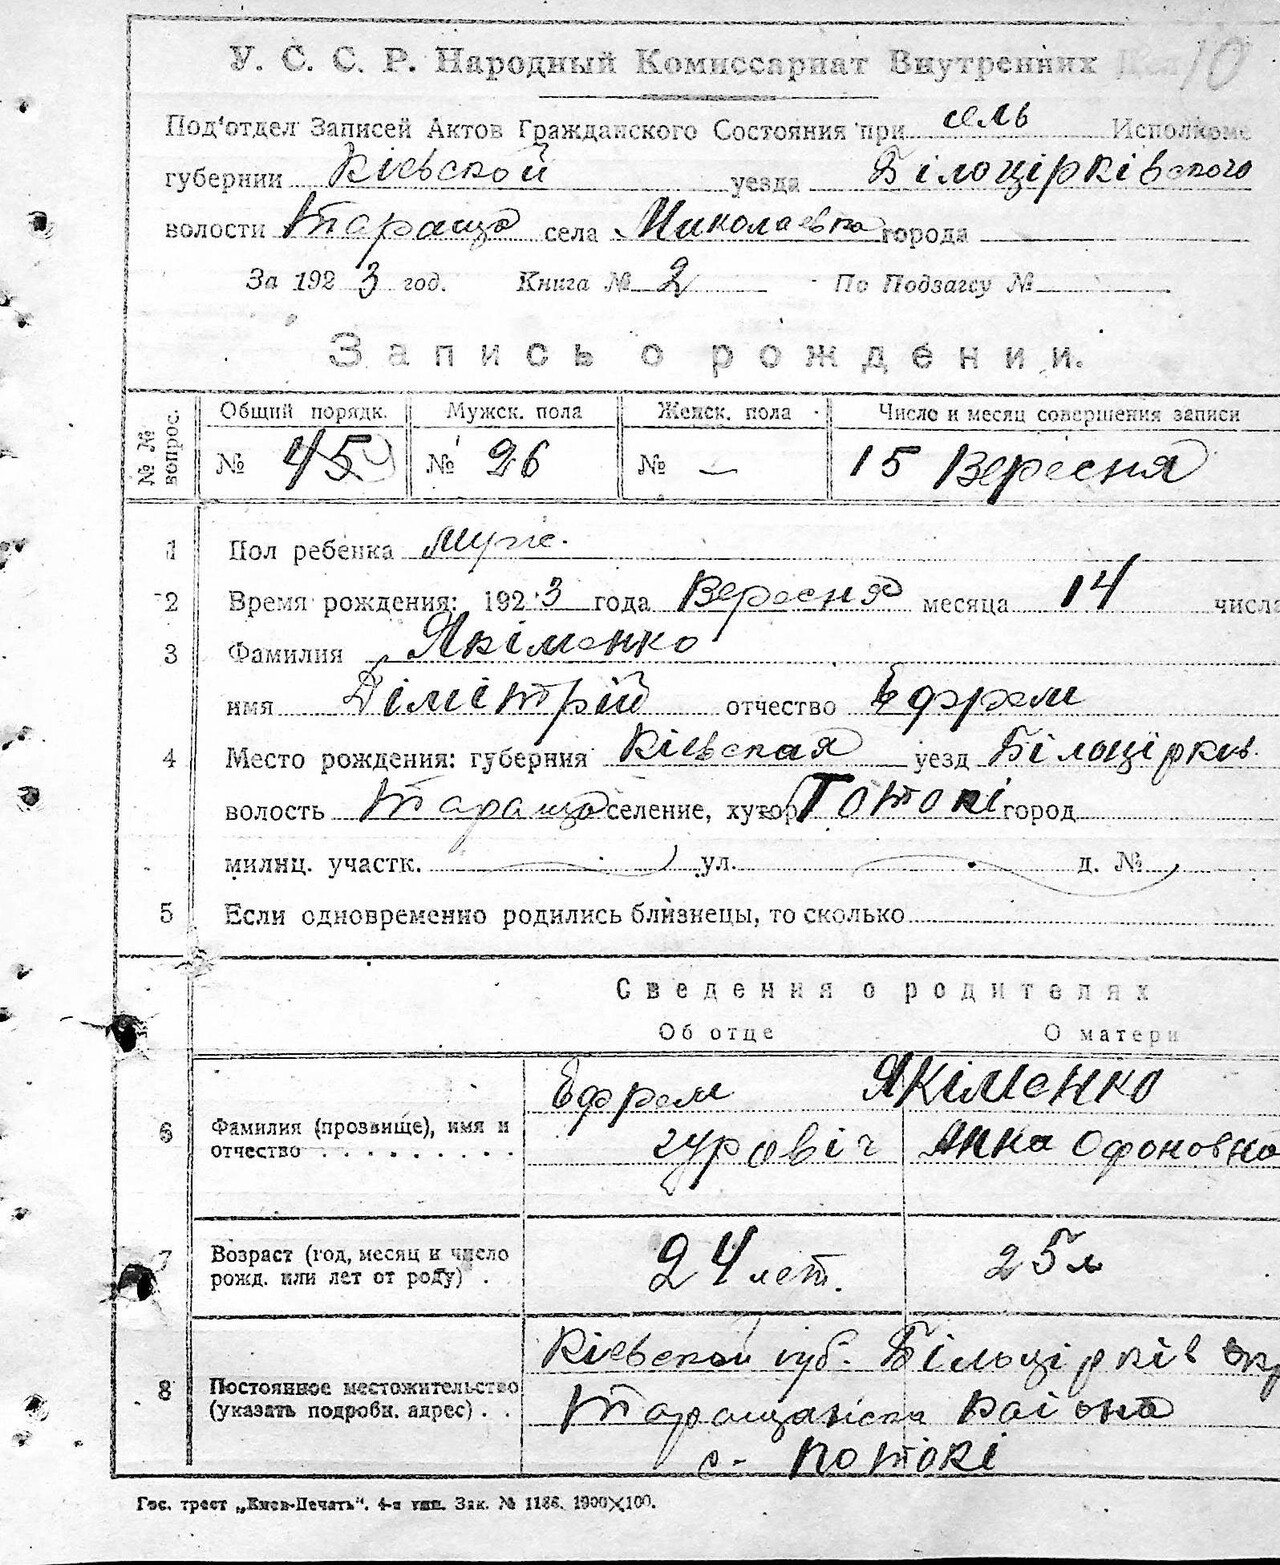 У. С. С. Р. Народный Комиссариат Внутренних Дел 10
Под'отдел Записей Актов Гражданского Состояния при сель Исполкоме
губернии Кіевской уезда Білоцірківского
волости Тараща села Миколаевка города
За 1923 год. Книга № 2 По Подзагсу №
Запись о рождении.
№ № вопрос. Общий порядк. Мужск. пола Женск. пола Число и месяц совершения записи
№ 45 № 26 № — 15 Вересня
1 Пол ребенка муж.
2 Время рождения: 1923 года Вересня месяца 14 числа
3 Фамилия Якіменко
имя Дімітрій отчество Ефрем
4 Место рождения: губерния Кіевская уезд Білоцірків.
волость Тараща селение, хутор Потокі город
милиц. участк. ул. д. №
5 Если одновременно родились близнецы, то сколько
Сведения о родителях
Об отце О матери
Ефрем Якіменко
6 Фамилия (прозвище), имя и отчество . . . . . . . . . гуровіч Анна Офоновна
7 Возраст (год, месяц и число рожд. или лет от роду) . 24 лет. 25 л
Кіевской губ. Більцірків окр
8 Постоянное местожительство (указать подробн. адрес) . . Таращанск раіона
с. Потокі
Гос. трест „Киев-Печать". 4-я тип. Зак. № 1186. 1900×100.